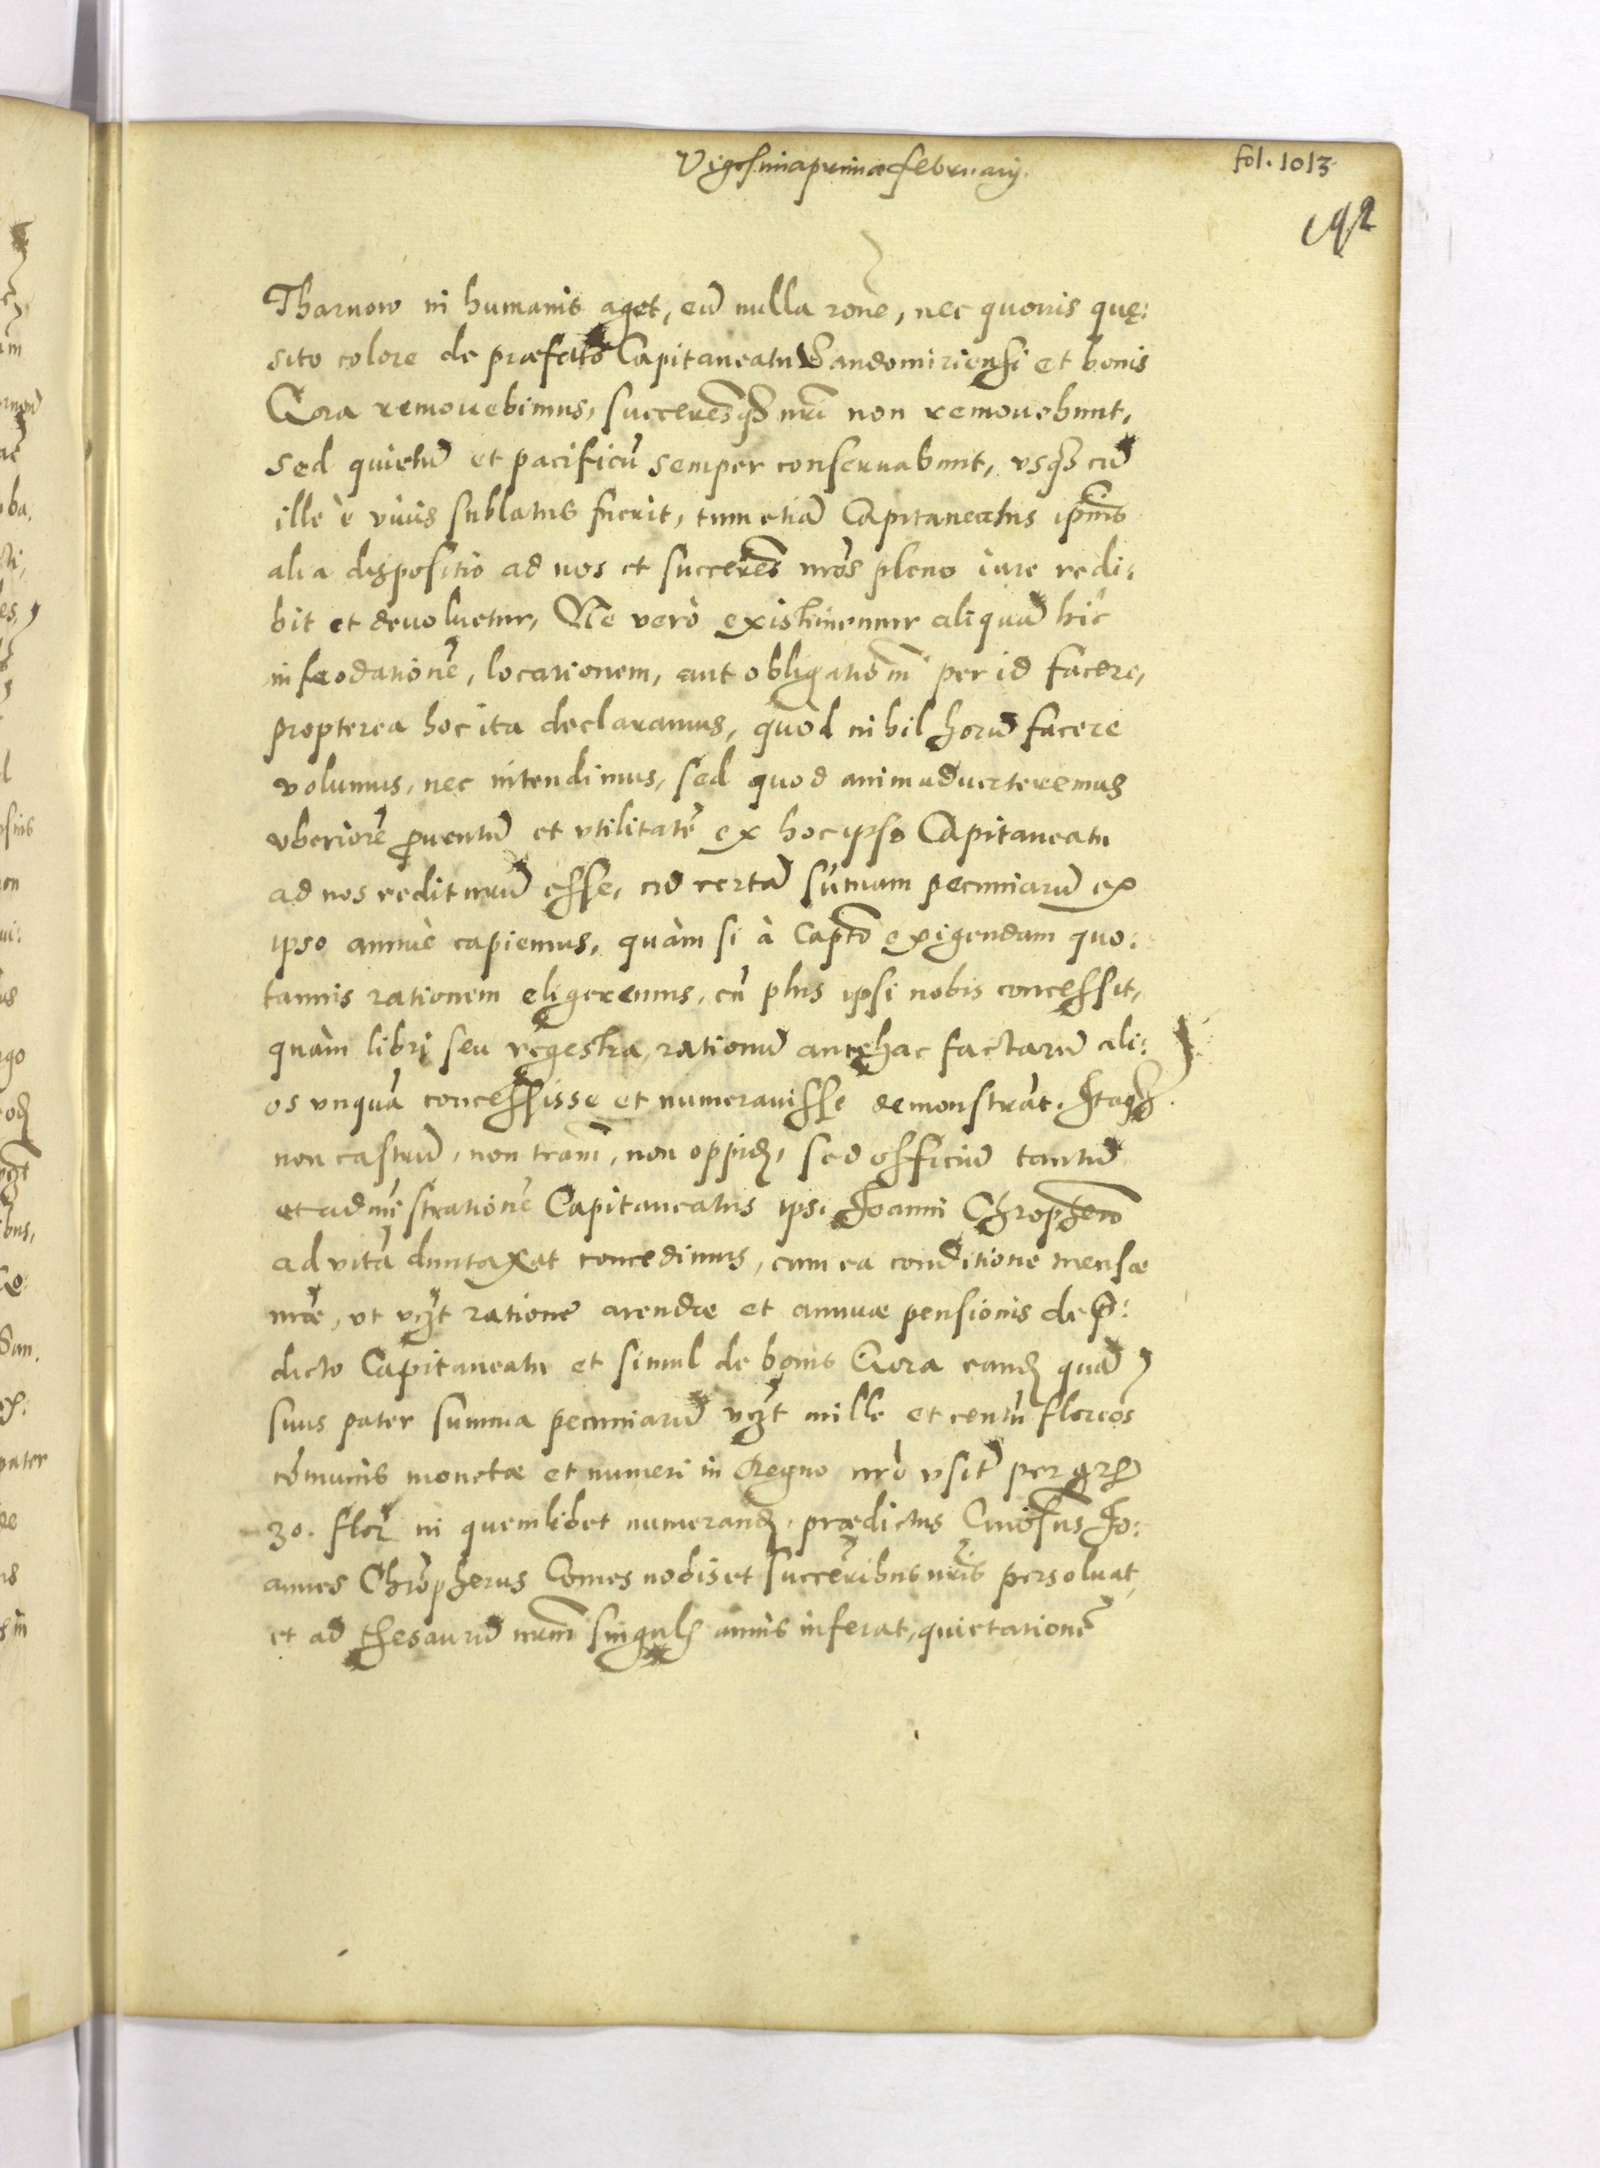 Vigesimaprima February.
fol. 1013
192
Tharnow in humanis aget, eũ nulla rõne, nec quouis quę:
sito colore de præfato Capitaneatu Sandomiriensi et bonis
Qora remouebimus, succeresq3 nr̃i non remouebunt,
sed quietũ et pacificũ semper conseruabunt, vsq3 cũ
ille è viuis sublatus fuerit, tum etiã Capitaneatus ip̃ius
alia dispositio ad nos et succeres nr̃os pleno iure redi:
bit et deuoluetur, Ne verò existimemur aliquã hic
infeodationẽ, locationem, aut obligationẽ per id facere,
propterea hoc ita declaramus, quod nihil horũ facere
volumus, nec intendimus, sed quod animaduerteremus
vberiorẽ ꝓuentũ et vtilitatẽ ex hoc ipso Capitaneatu
ad nos rediturũ esse, cũ certã sũmam pecuniarũ ex
ipso annuè capiemus, quàm si à Captõ exigendam quo:
tannis rationem eligeremus, cũ plus ipsi nobis concessit,
quàm libri seu regestra, rationũ antehac factarũ ali:
os vnquã concessisse et numerauisse demonstrãt. Itaq3
non castrũ, non trãm, non oppid, sed officiũ tantũ
et administrationẽ Capitaneatus ipsi Joanni Chrõphero
ad vitã duntaxat concedimus, cum ea conditione mensæ
nr̃æ, vt vz̃t ratione arendæ et annuæ pensionis de p̃:
dicto Capitaneatu et simul de bonis Qora eand quã
suus pater summa pecuniarũ vz̃t mille et centũ florẽos
cõmunis monetæ et numeri in Regno nr̃o vsit̃ per gr
30. flor̃ in quemlibet numerand, prædictus Gnõsus Jo:
annes Chrõpherus Comes nobis et succeribus nr̃is persoluat,
et ad thesaurũ nr̃um singulis annis inferat, quietationẽ